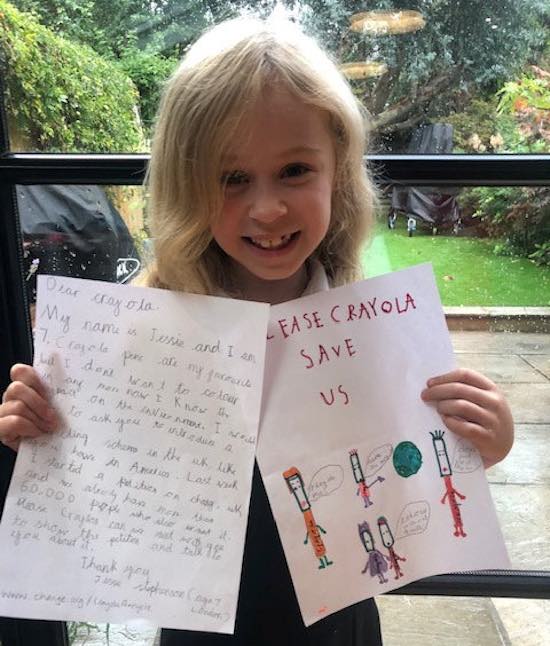 Dear crayola
My name is Jessie and I am
7. Crayola pens are my favourite
but I dont want to colour
in any more now I know the
on the enviroment. I would
to ask you to introduce a
scheme in the uk like
have in America. Last week
I started a petition on change.
and we already have more than
60,000 people who also want it.
Please Crayola can we meet with you
to show the petition and talk to
you about it.
Thank you
Jessie stephenson (age 7
London)
LEASE CRAYOLA
SAVE
US